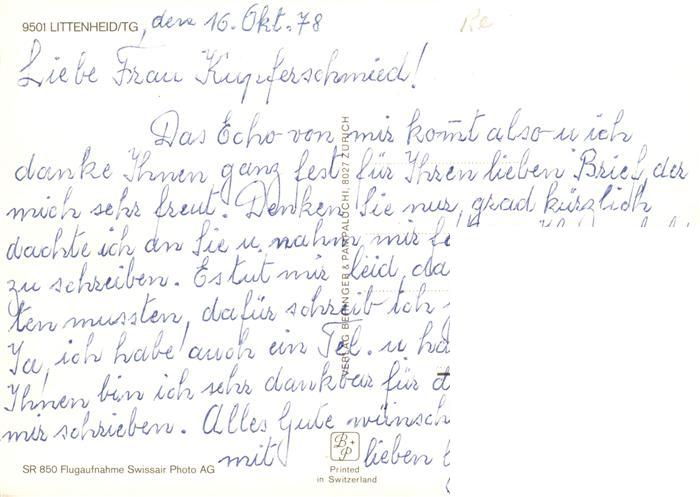 9501 LITTENHEID/TG, den 16. Okt. 78
Liebe Frau Kupferschmied!
Das Echo von mir kom̄t also u ich
danke Ihnen ganz fest für Ihren lieben Brief, der
mich sehr freut. Denken Sie nur, grad kürzlich
dachte ich an Sie u. nahm mir
zu schreiben. Es tut mir leid, da
ten mussten, dafür schreib ich
Ja, ich habe auch ein Tel. u ha
Ihnen bin ich sehr dankbar für d
mir schrieben. Alles Gute wünsch
mit lieben
VERLAG BERINGER & PAMPALUCHI, 8027 ZÜRICH
B+P
SR 850 Flugaufnahme Swissair Photo AG
Printed
in Switzerland